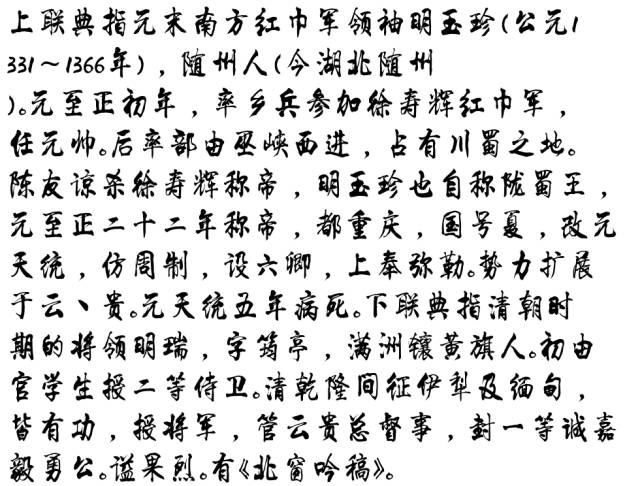 上联典指元末南方红巾军领袖明玉珍(公元1
331～1366年)，随州人(今湖北随州
)。元至正初年，率乡兵参加徐寿辉红巾军，
任元帅。后率部由巫峡西进，占有川蜀之地。
陈友谅杀徐寿辉称帝，明玉珍也自称陇蜀王，
元至正二十二年称帝，都重庆，国号夏，改元
天统，仿周制，设六卿，上奉弥勒。势力扩展
于云、贵。元天统五年病死。下联典指清朝时
期的将领明瑞，字筠亭，满洲镶黄旗人。初由
官学生授二等侍卫。清乾隆间征伊犁及缅甸，
皆有功，授将军，管云贵总督事，封一等诚嘉
毅勇公。谥果烈。有《北窗吟稿》。